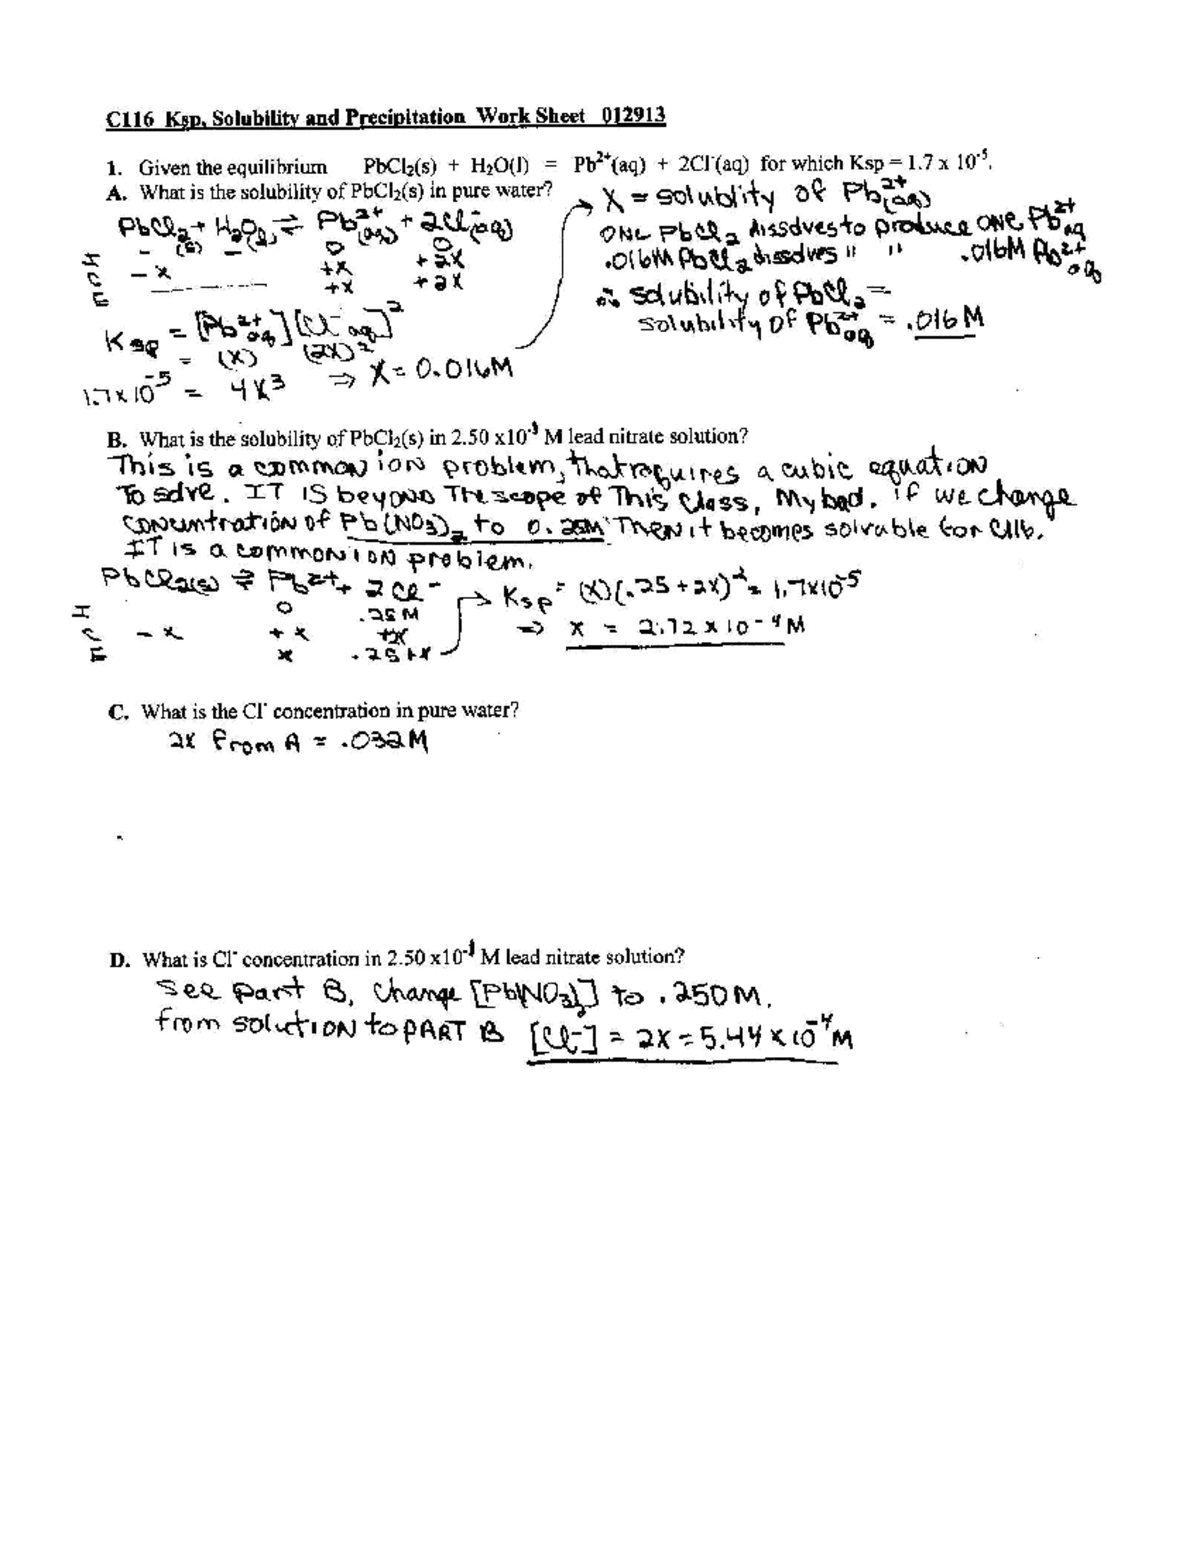 C116 Ksp, Solubility and Precipitation Work Sheet 012913
1. Given the equilibrium PbCl₂(s) + H₂O(l) = Pb²⁺(aq) + 2Cl⁻(aq) for which Ksp = 1.7 x 10⁻⁵.
A. What is the solubility of PbCl₂(s) in pure water?
X = solublity of Pb²⁺(aq)
PbCl₂(s) + H₂O(l) ⇌ Pb²⁺(aq) + 2Cl⁻(aq)
ONE PbCl₂ dissolves to produce ONE Pb²⁺aq
I - - 0 0
.016M PbCl₂ dissolves " " .016M Pb²⁺aq
C - x +x + 2x
E +x + 2x
∴ solubility of PbCl₂ =
solubility of Pb²⁺aq = .016 M
Ksp = [Pb²⁺aq][Cl⁻aq]²
= (x) (2x)²
1.7x10⁻⁵ = 4x³ ⇒ X = 0.016M
B. What is the solubility of PbCl₂(s) in 2.50 x10⁻¹ M lead nitrate solution?
This is a common ion problem, that requires a cubic equation
To solve. IT IS beyond The scope of This class, My bad. if we change
concentration of Pb(NO₃)₂ to 0.25M THEN it becomes solvable for C116.
IT is a common ion problem.
PbCl₂(s) ⇌ Pb²⁺ + 2Cl⁻
Ksp = (x)(.25+2x)² = 1.7x10⁻⁵
I 0 .25M
⇒ x = 2.72 x 10⁻⁴ M
C - x + x +2x
E x .25+x
C. What is the Cl⁻ concentration in pure water?
2x from A = .032M
D. What is Cl⁻ concentration in 2.50 x10⁻¹ M lead nitrate solution?
See part B, change [Pb(NO₃)₂] to .250M.
from solution to PART B [Cl⁻] = 2x = 5.44 x 10⁻⁴ M